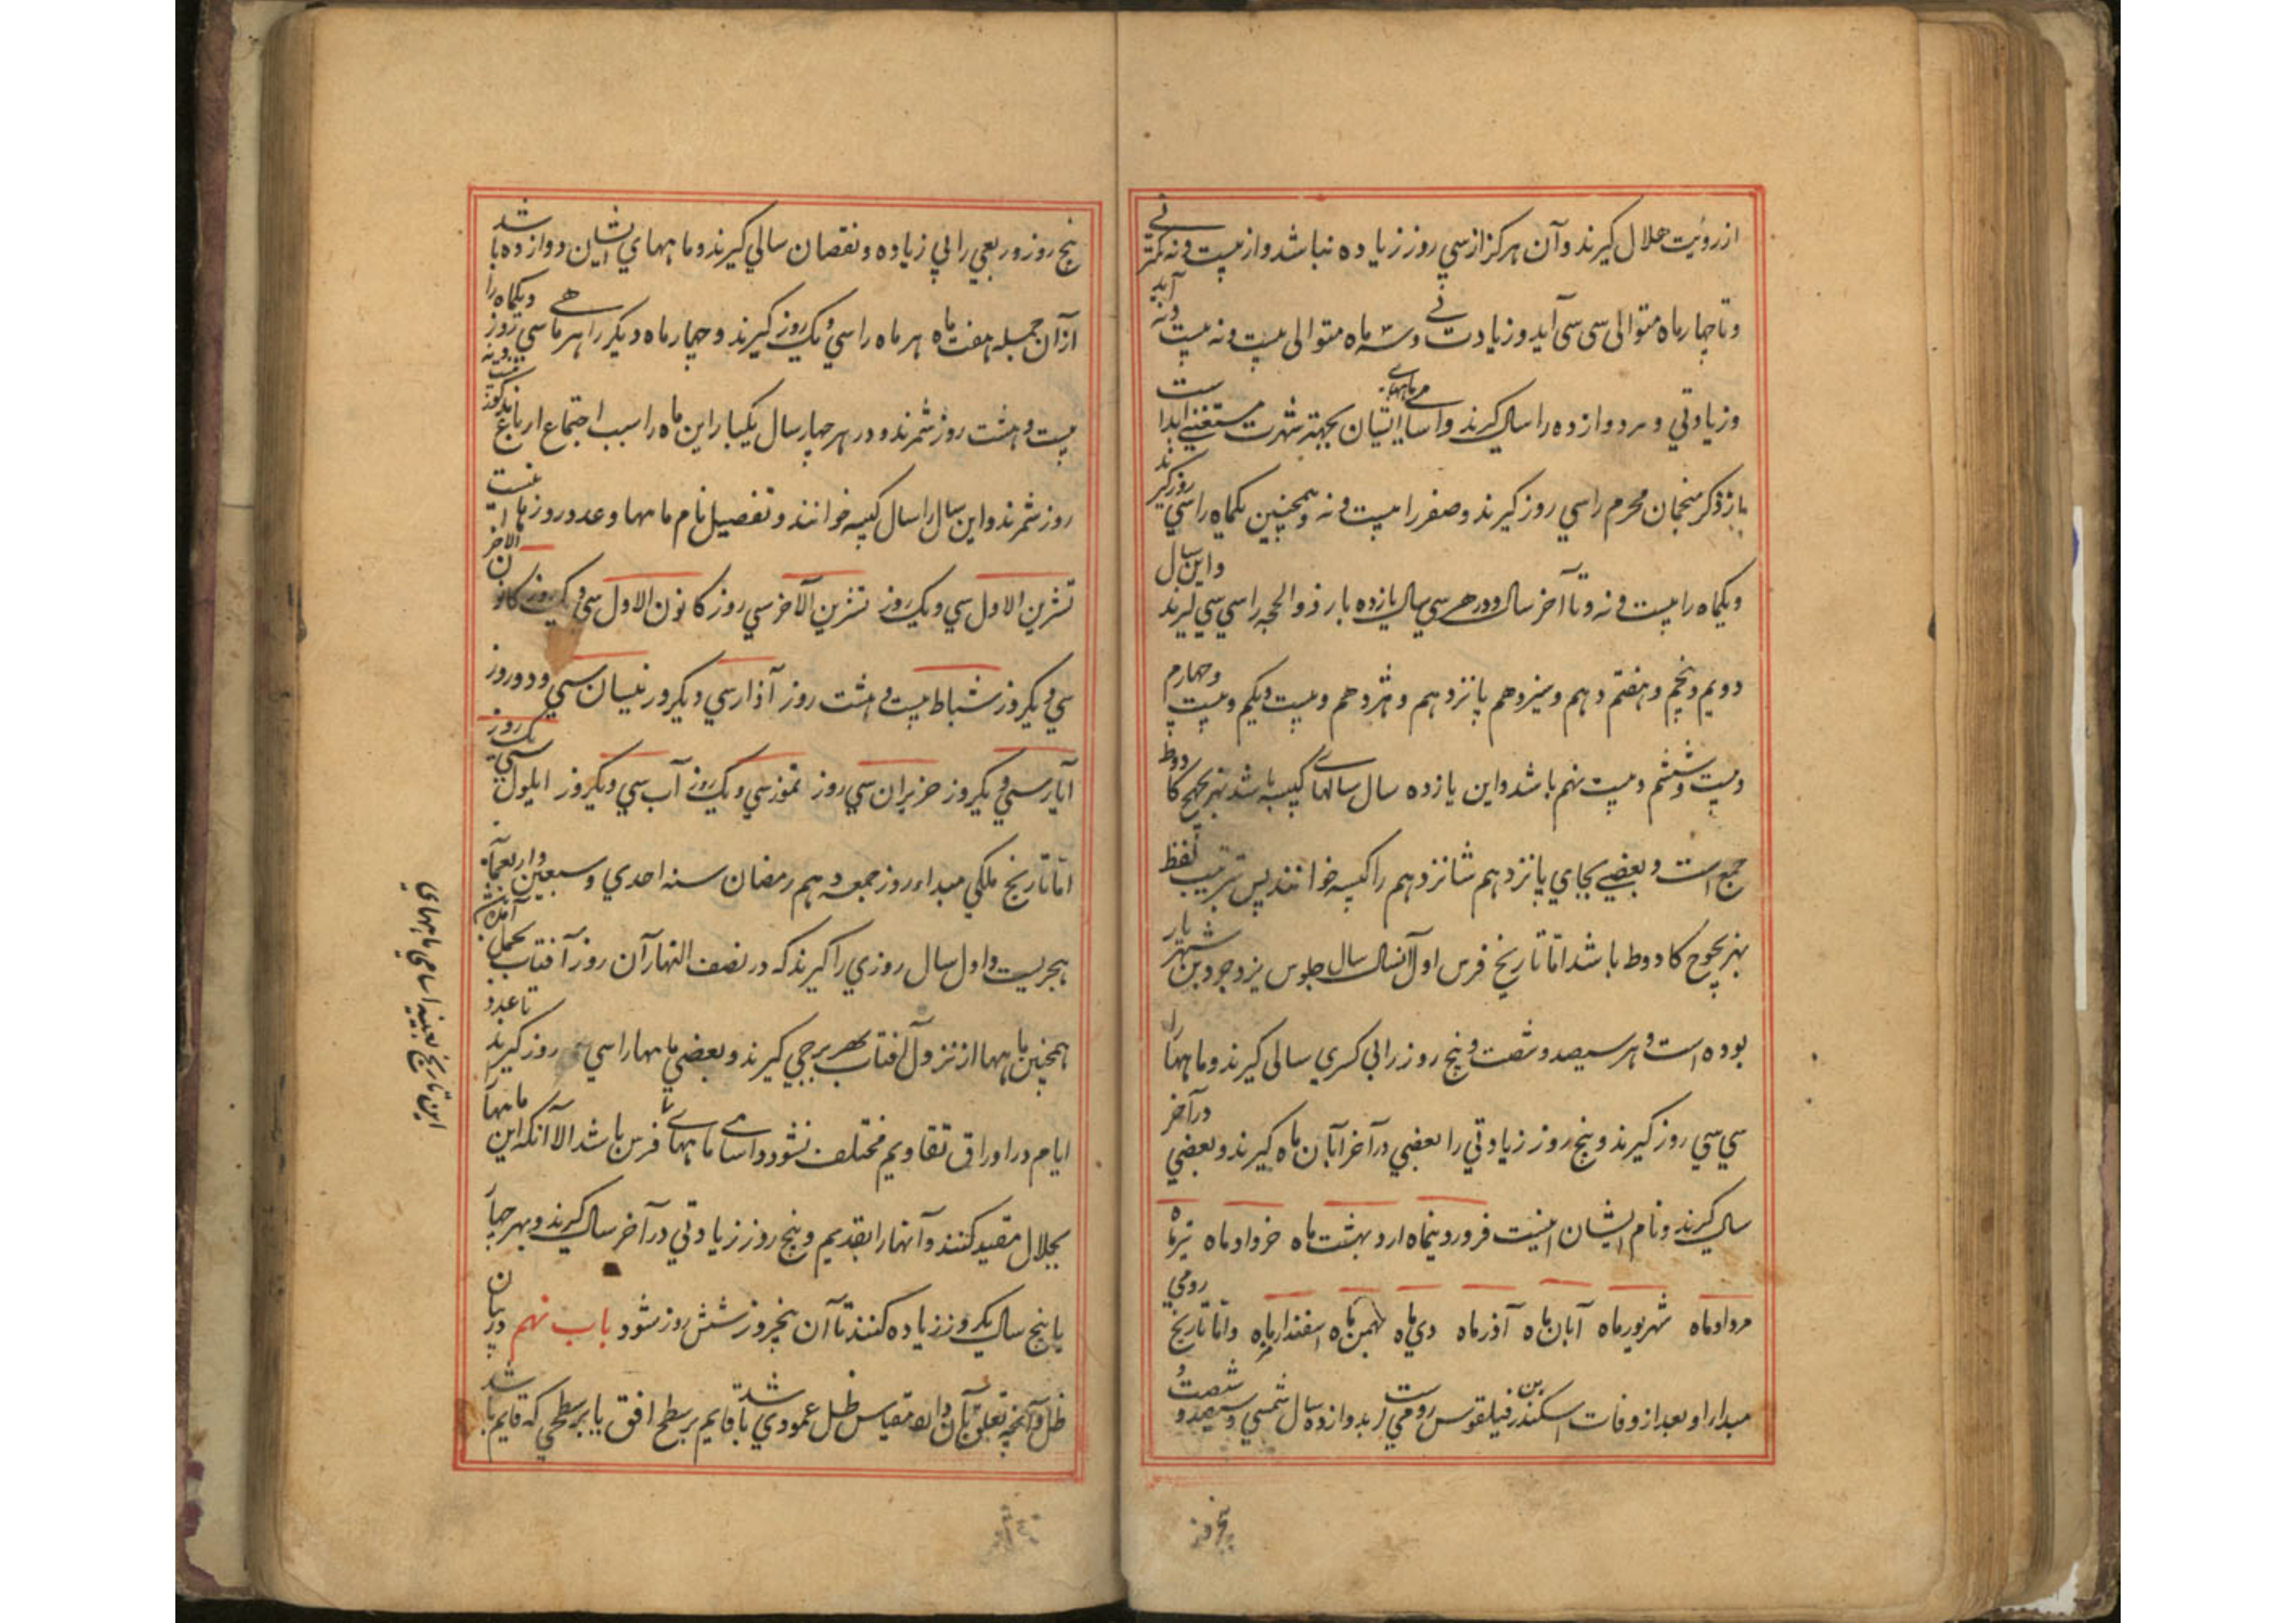 از رؤیت هلال گیرند و آن هرگز از سی روز زیاده نباشد و از بیست و نه کمتر نی
و تا چهار ماه متوالی سی سی آید و زیادت نی و سه ماه متوالی بیست و نه بیست و نه آید
و زیادتی و هر دوازده را سالی گیرند و اسامی ماههای ایشان بجهته شهرت مستغنی است
باز ذکر منجمان محرم را سی روز گیرند و صفر را بیست و نه و همچنین یکماه را سی روز گیرند
و یکماه را بیست و نه و تا آخر سال و در هر سی سال یازده بار ذوالحجه را سی سی گیرند و این سال
دویم و پنجم و هفتم و دهم و سیزدهم پانزدهم و هژدهم و بیست و یکم و بیست و چهارم
و بیست و ششم و بیست نهم باشد و این یازده سال سالهای کبیسه باشد بهزیجهح کادوط
جمع است و بعضی بجای پانزدهم شانزدهم را کبیسه خوانند پس ترتیب لفظ
بهزیجوح کادوط باشد اما تاریخ فرس اول آنسال سال جلوس یزدجرد بن شهریار
بوده است و هر سیصد و شصت و پنج روز را بی کسری سالی گیرند و ماهها را
سی سی روز گیرند و پنج روز زیادتی را بعضی در آخر آبان ماه گیرند و بعضی در آخر
سال گیرند و نام ایشان اینست فروردینماه اردیبهشت ماه خرداد ماه تیر ماه
مرداد ماه شهریور ماه آبان ماه آذر ماه دی ماه بهمن ماه اسفندارماه و اما تاریخ رومی
مبداء او بعد از وفات اسکندر بن فیلقوس رومی است بدوازده سال شمسی و سیصد و شصت و
پنجروز
پنج روز و ربعی را بی زیاده و نقصان سالی گیرند و ماههای ایشان دوازده باشد
از آن جمله هفت ماه هر ماه را سی و یک روز گیرند و چهار ماه دیگر را هر ماهی سی روز و یکماه را
بیست و هشت روز شمرند و در هر چهار سال یکبار این ماه را سبب اجتماع ارباع بیست و نه
روز شمرند و این سال را سال کبیسه خوانند و تفصیل نام ماهها و عدد روزها اینست
تشرین الاول سی و یک روز تشرین الآخر سی روز کانون الاول سی و یک روز کانون الاخر
سی و یکروز شباط بیست و هشت روز آذار سی و یکروز نیسان سی و دو روز
آیار سی و یکروز حزیران سی روز تموز سی و یک روز آب سی و یکروز ایلول سی یک روز
اما تاریخ ملکی مبداء روز جمعه دهم رمضان سنه احدی و سبعین و اربعمایه
هجریست و اول سال روزی را گیرند که در نصف النهار آن روز آفتاب بحمل آمده باشد
همچنین ماهها از نزول آفتاب بهر برجی گیرند و بعضی ماهها را سی سی روز گیرند تا عدد
ایام در اوراق تقاویم مختلف نشود و اسامی ماهها نامهای فرس باشد الا آنکه این ماهها
بجلال مقید کنند و آنها را بقدیم و پنج روز زیادتی در آخر سال گیرند و بهر چهار
یا پنج سال یکروز زیاده کنند تا آن پنجروز شش روز شود باب نهم در بیان
ظل و آنچه تعلق بآن دارد مقیاس ظل عمودی باشد قایم بر سطح افق یا بر سطحی که قایم باشد
این تاریخ بعینه اسامی ماههای